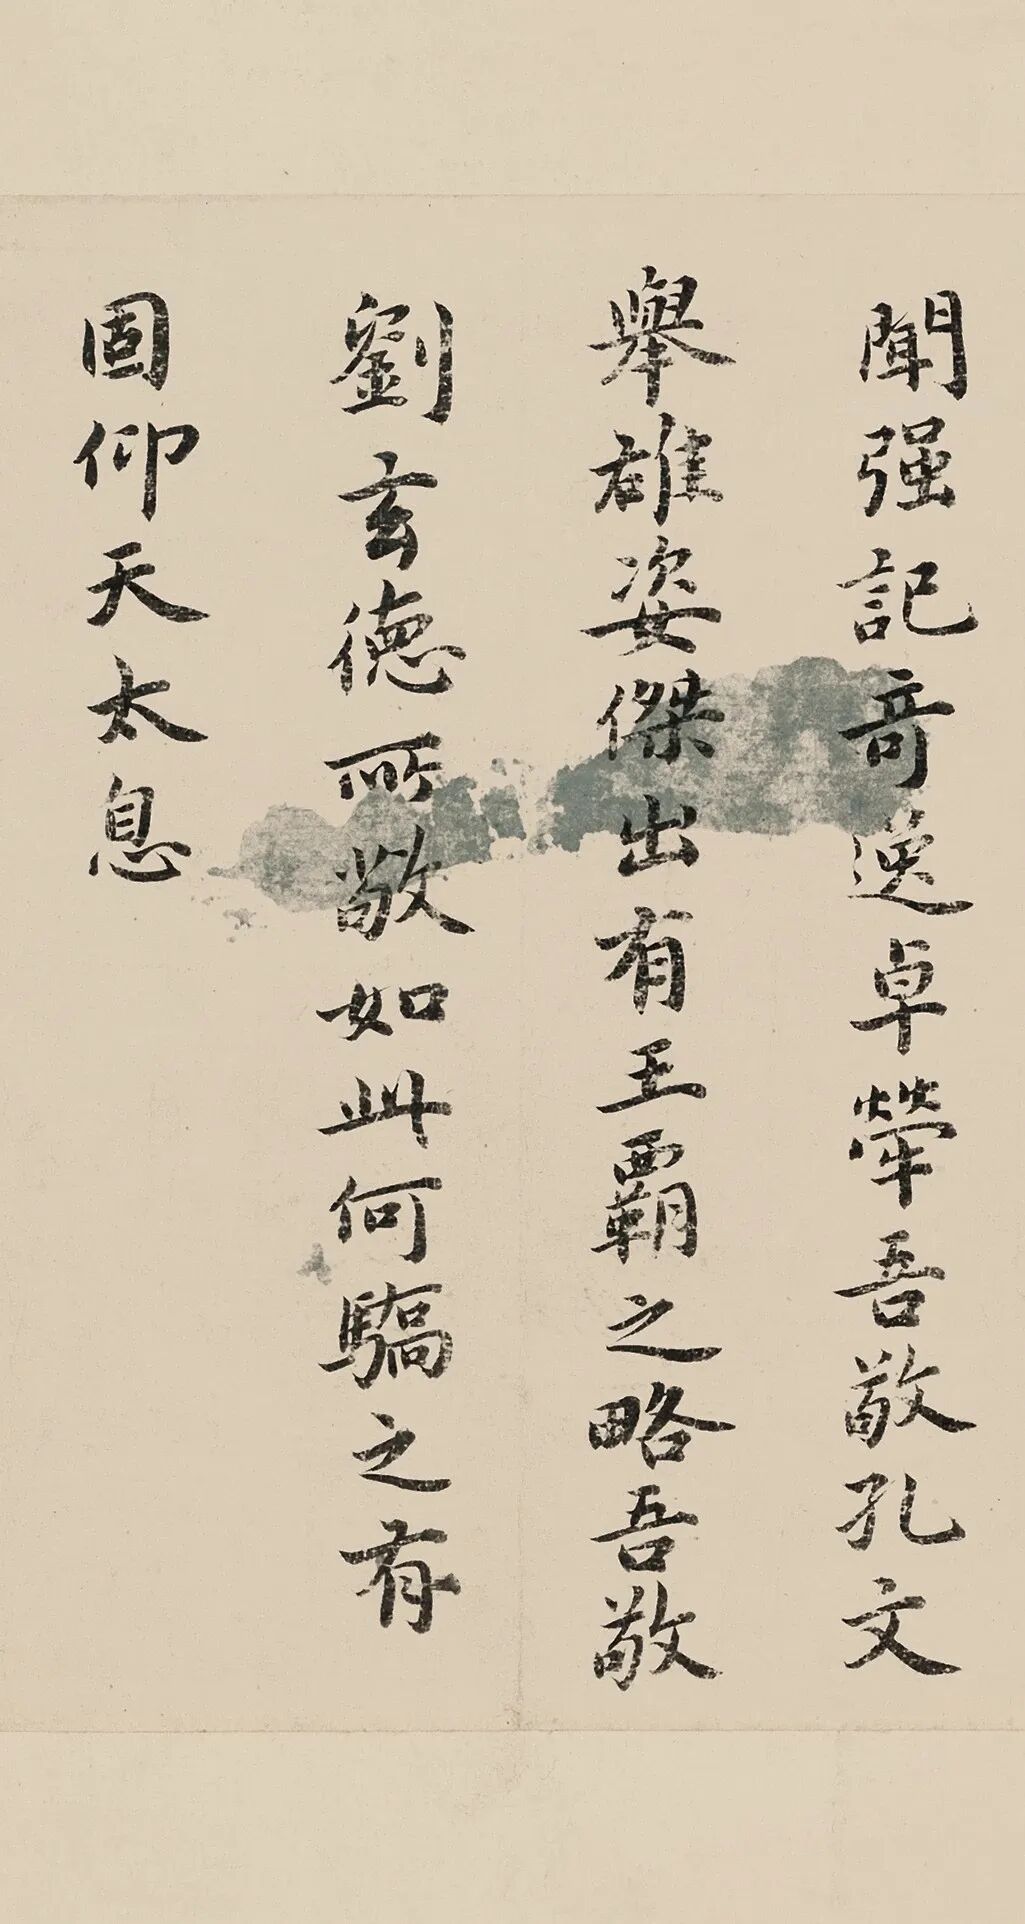 聞强記奇逸卓犖吾敬孔文
舉雄姿傑出有王霸之略吾敬
劉玄德所敬如此何驕之有
固仰天太息